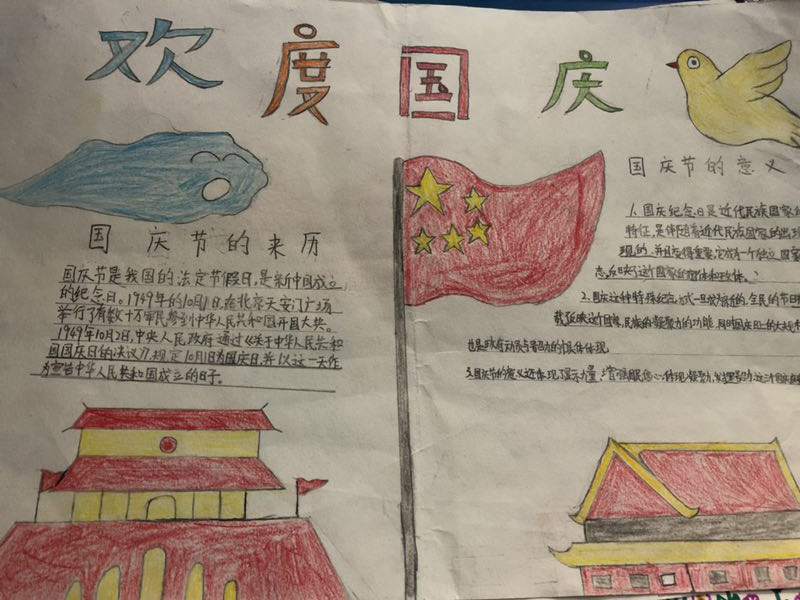 欢度国庆
国庆节的来历
国庆节是我国的法定节假日,是新中国成立
的纪念日。1949年的10月1日,在北京天安门广场
举行了有数十万军民参加的中华人民共和国开国大典。
1949年10月2日,中央人民政府通过《关于中华人民共和
国国庆日的决议》,规定10月1日为国庆日,并以这一天作
为宣告中华人民共和国成立的日子。
国庆节的意义
1、国庆纪念日是近代民族国家的
特征,是伴随着近代民族国家的出现
现的,并且变得重要,它成为一个独立国家
志,反映了这个国家的国体和政体。
2.国庆这种特殊纪念
全民的节日
载反映这个国家、民族的凝聚力的功能,同时国庆日的大规
也是政府动员与号召力的具体体现
3.国庆节的意义还体现了显示力量、增强国民信心,体现凝聚力,发挥号召力,